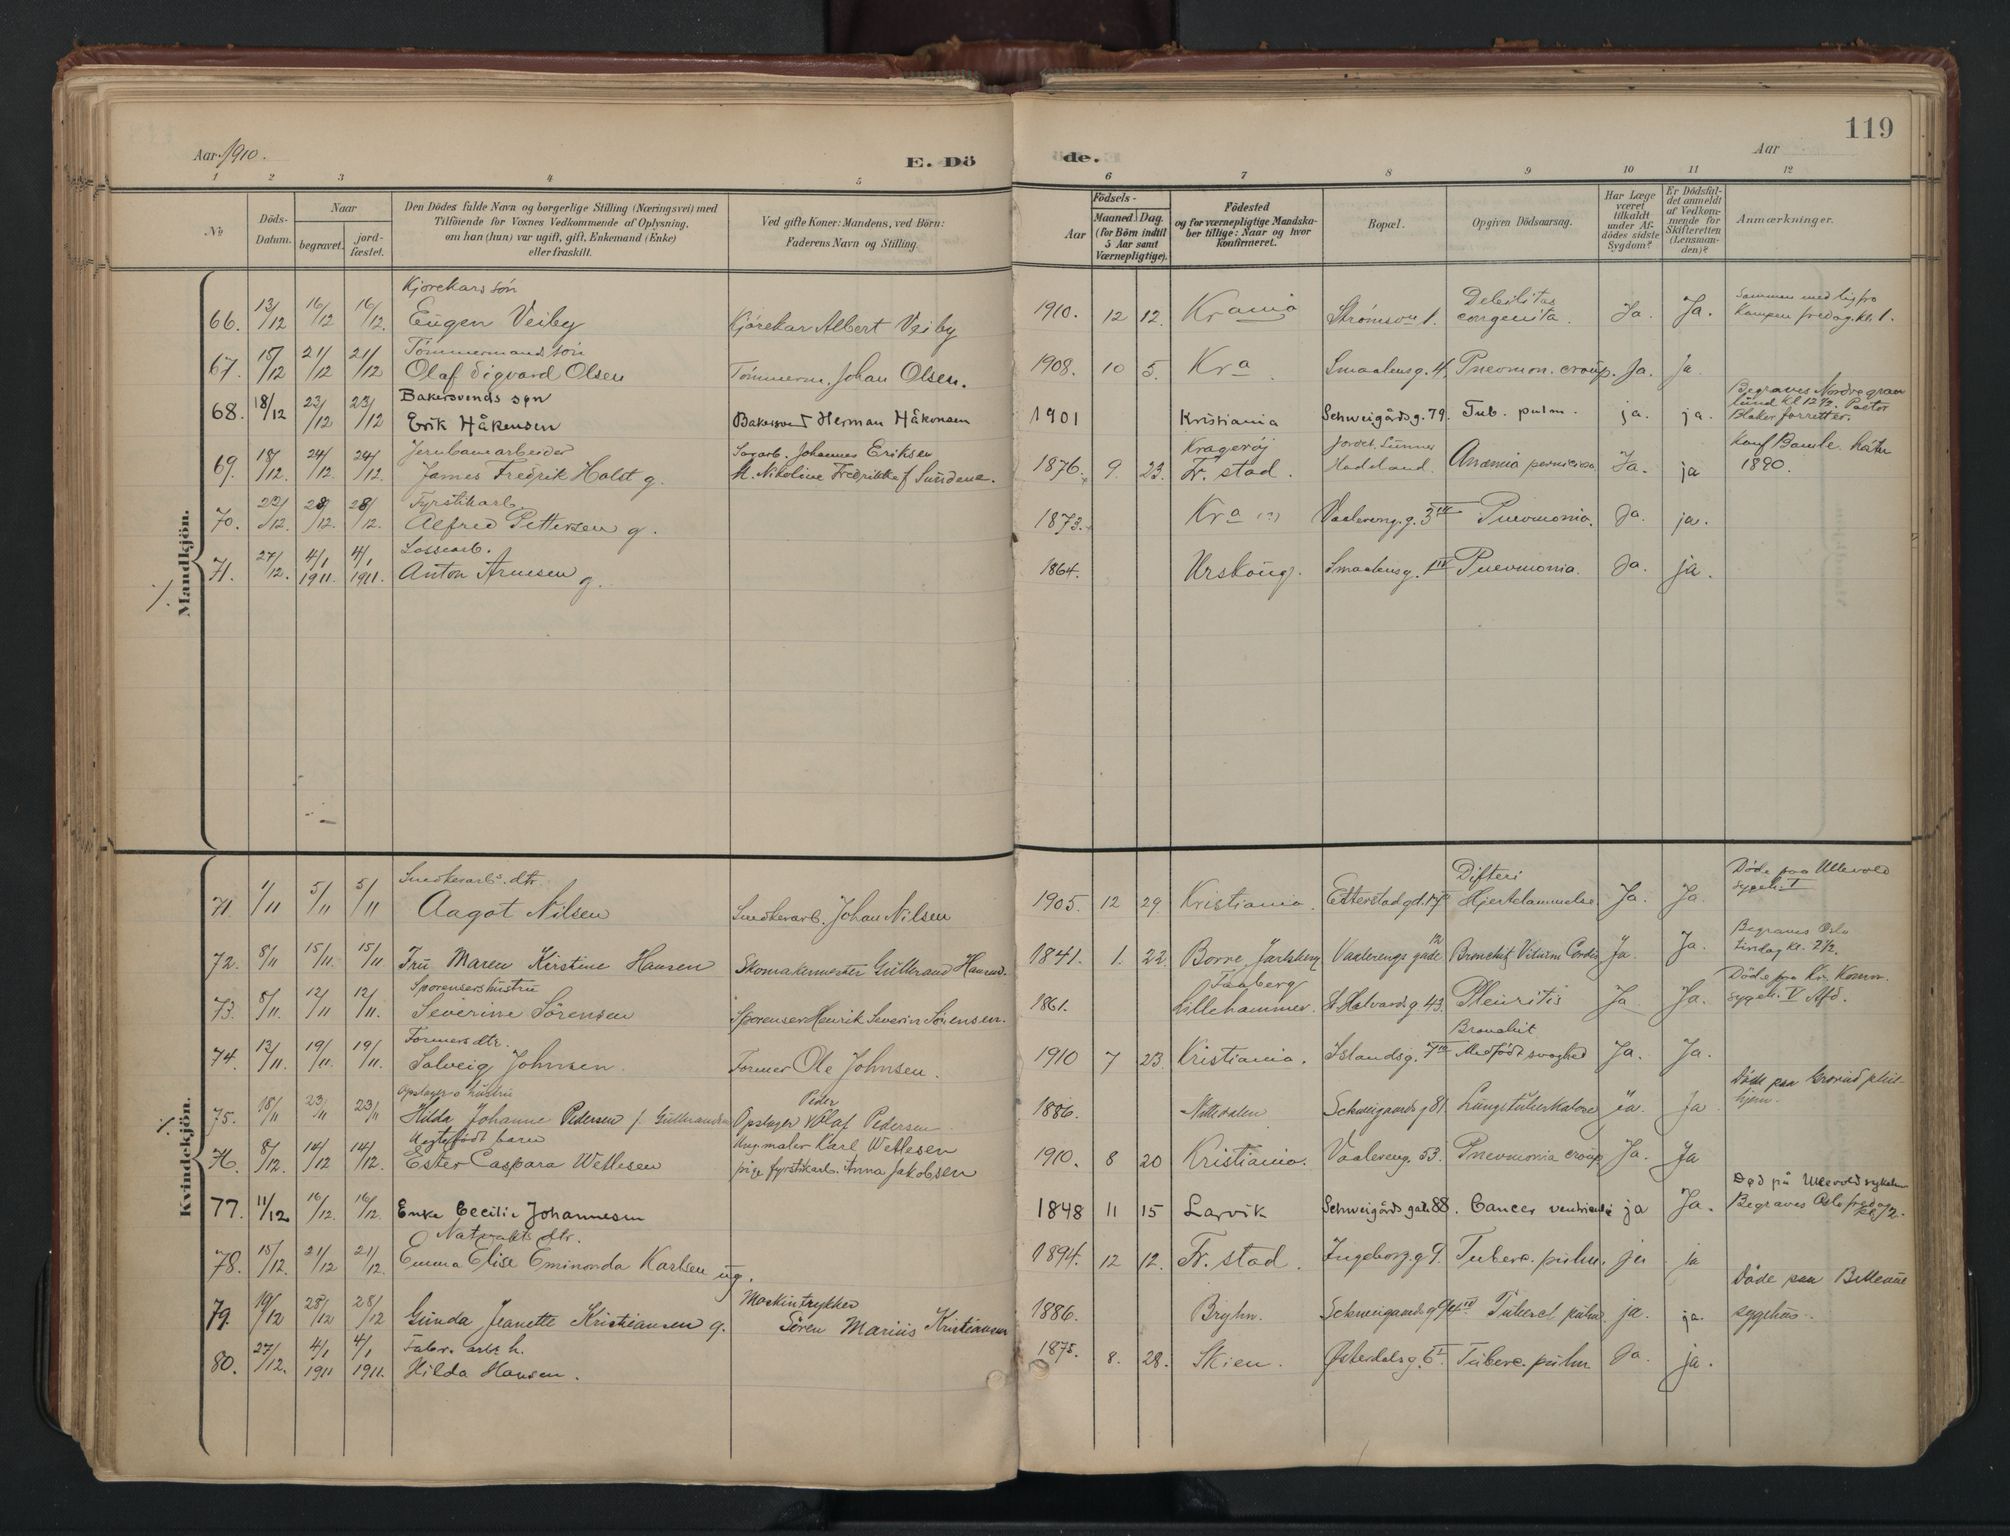 Aar 1910.
E. Dö
de.
Aar
119
1 2 3 4 5 6 7 8 9 10 11 12
No
Döds-Datum.
Naar
begravet.
jord-fæstet.
Den Dödes fulde Navn og borgerlige Stilling (Næringsvei) med
Tilföiende for Voxnes Vedkommende af Oplysning,
om han (hun) var ugift, gift, Enkemand (Enke)
eller fraskilt.
Ved gifte Koner: Mandens, ved Börn:
Faderens Navn og Stilling.
Födsels-
Aar
Maaned Dag.
(for Börn indtil
5 Aar samt
Værnepligtige).
Födested
og for værnepligtige Mandska-
ber tillige: Naar og hvor
konfirmeret.
Bopæl.
Opgiven Dödsaarsag.
Har Læge
været
tilkaldt
under Af-
dödes sidste
Sygdom?
Er Dödsfal-
det anmeldt
af Vedkom-
mende for
Skifteretten
(Lensman-
den)?
Anmærkninger.
Mandkjön.
Kjørekars søn
66. 13/12 16/12 16/12 Eugen Veiby Kjørekar Albert Veiby 1910. 12 12. Krania Strømsvn 1. Debilitas congenita. Ja. Ja. Sammen med lig fra Kampen fredag kl. 1.
Tømmermands søn
67. 15/12 21/12 21/12 Olaf Sigvard Olsen Tømmerm. Johan Olsen. 1908. 10 5. Kra Smaalensg. 4, Pnevmon. croup. Ja. Ja.
Bakersvends søn
68. 18/12 23/12 23/12 Erik Håkensen Bakersvend Herman Håkonsen 1901 Kristiania Schweigårdsg. 79. Tub. pulm. ja. ja. Begraves Nordre gravlund kl 12½. Pastor Blaker forretter.
Jernbanearbeider
69. 18/12 24/12 24/12 James Fredrik Holst g. Sagarb. Johannes Eriksen M. Nikoline Fredrikke f Sundene. 1876. 9. 23. Kragerøj Fr. stad. Hadeland. Anæmia perniciosa Ja. ja Konf Bamle 1890.
Fyrstikarb.
70. 28/12 28/12 Alfred Pettersen g. 1873. Kra (?) Vaalereng. g. 3 III Pnevmonia. Ja. ja.
Lossearb.
71. 27/12. 4/1 1911. 4/1 1911. Anton Arnesen g. 1864. Urskoug. Smaalensg. 1 III Pnevmonia. Ja. ja.
Kvindekjön.
Snedkerarb.s dtr.
71. 1/11 5/11 5/11 Aagot Nilsen Snedkerarb. Johan Nilsen 1905. 12 29. Kristiania. Etterstadgd. Difteri Hjertelammelse. Ja. Ja. Døde paa Ullevold sygeh.
72. 8/11 15/11. 15/11 Fru Maren Kirstine Hansen Skomakermester Gulbrand Hansen. 1841. 1. 22. Borre Jarlsberg Vaalerengs gade 12 Bronchit, Vitium Cordis Ja. Ja. Begraves Oslo tirsdag kl. 2½.
Sporenserhustru
73. 8/11. 12/11. 12/11. Severine Sørensen Sporenser Henrik Severin Sørensen. 1861. Faaberg Lillehammer. St. Halvardsg. 43. Pleuritis Ja Ja. Døde paa Kr. Komm. sygeh. V Afd.
Formers dtr.
74. 13/11. 19/11. 19/11. Solveig Johnsen. Former Ole Johnsen. 1910 7 23 Kristiania. Islandsg. 7 III Bronchit Medfødt svaghed Ja. Ja.
Opslagers hustru
75. 18/11 23/11 23/11 Hilda Johanne Pedersen f. Gulbrandsen Opslager Peder Olaf Pedersen 1886. Nittedalen Schweigaardsg 81. Lungetuberkulose ja. Ja Døde paa Grorud pleiehjem.
Uegtefødt barn
76. 8/12. 14/12 14/12. Ester Caspara Wetlesen Ung. maler Karl Wetlesen pige fyrstikarb. Anna Jakobsen 1910. 8 20 Kristiania. Vaalereng. 53. Pnevmonia croup Ja. Ja
77. 11/12 16/12. 16/12. Enke Cecilie Johannesen 1848 11 15 Larvik Schweigårds gade 88. Cancer ventriculi ja Ja. Død på Ullevold sykehus Begraves Oslo fredag kl. ½2.
Natvakts dtr.
78. 15/12. 21/12 21/12. Emma Elise Eminonda Karlsen ug. 1894. 12 12. Fr. stad. Ingeborg. g 9. Tuberc. pulm. ja ja
79. 19/12 28/12 28/12 Gunda Jeanette Kristiansen g. Maskintrykker Søren Marius Kristiansen 1886. Bryhn. Schweigaardsg Tubercl pulm ja. ja. Døde paa Bellevue sygehus.
Fabr. arb. h.
80. 27/12. 4/1 1911 4/1 1911. Hilda Hansen. 1875. 8. 28. Skien. Østerdalsg. 6 I Tuberc. pulm Ja. ja.